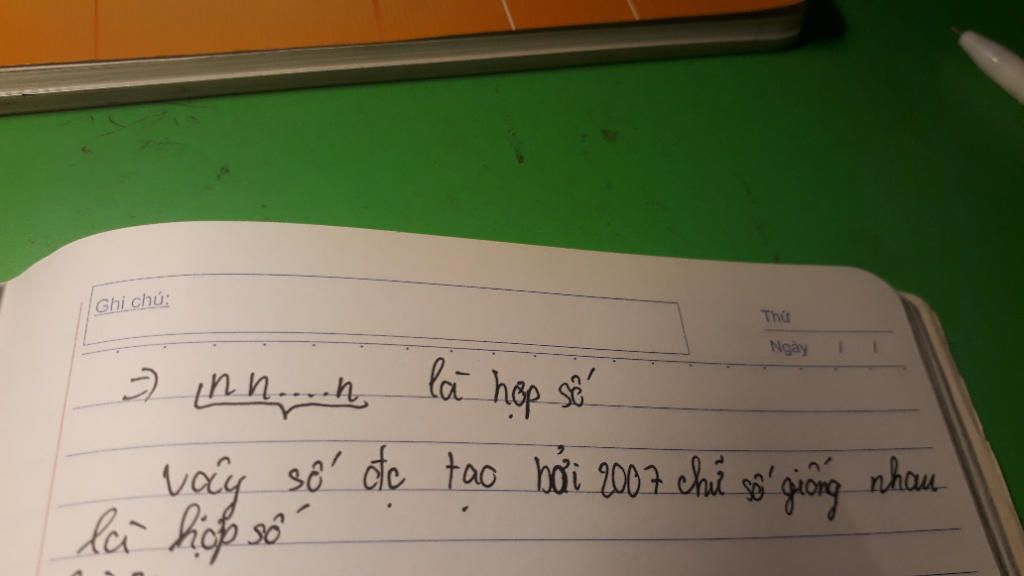 Ghi chú:
Thứ
Ngày / /
=) nn....n là hợp số
Vậy số đc tạo bởi 2007 chữ số giống nhau
là hợp số